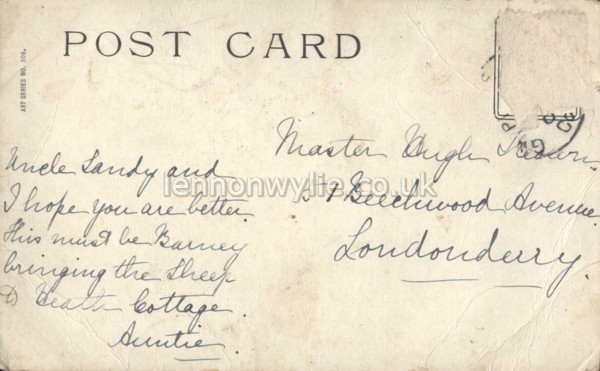 POST CARD
ART SERIES NO. 306.
Uncle Sandy and
I hope you are better.
This must be Barney
bringing the Sheep
Heath Cottage.
Auntie.
Master Hugh
Beechwood Avenue.
Londonderry.
lennonwylie.co.uk